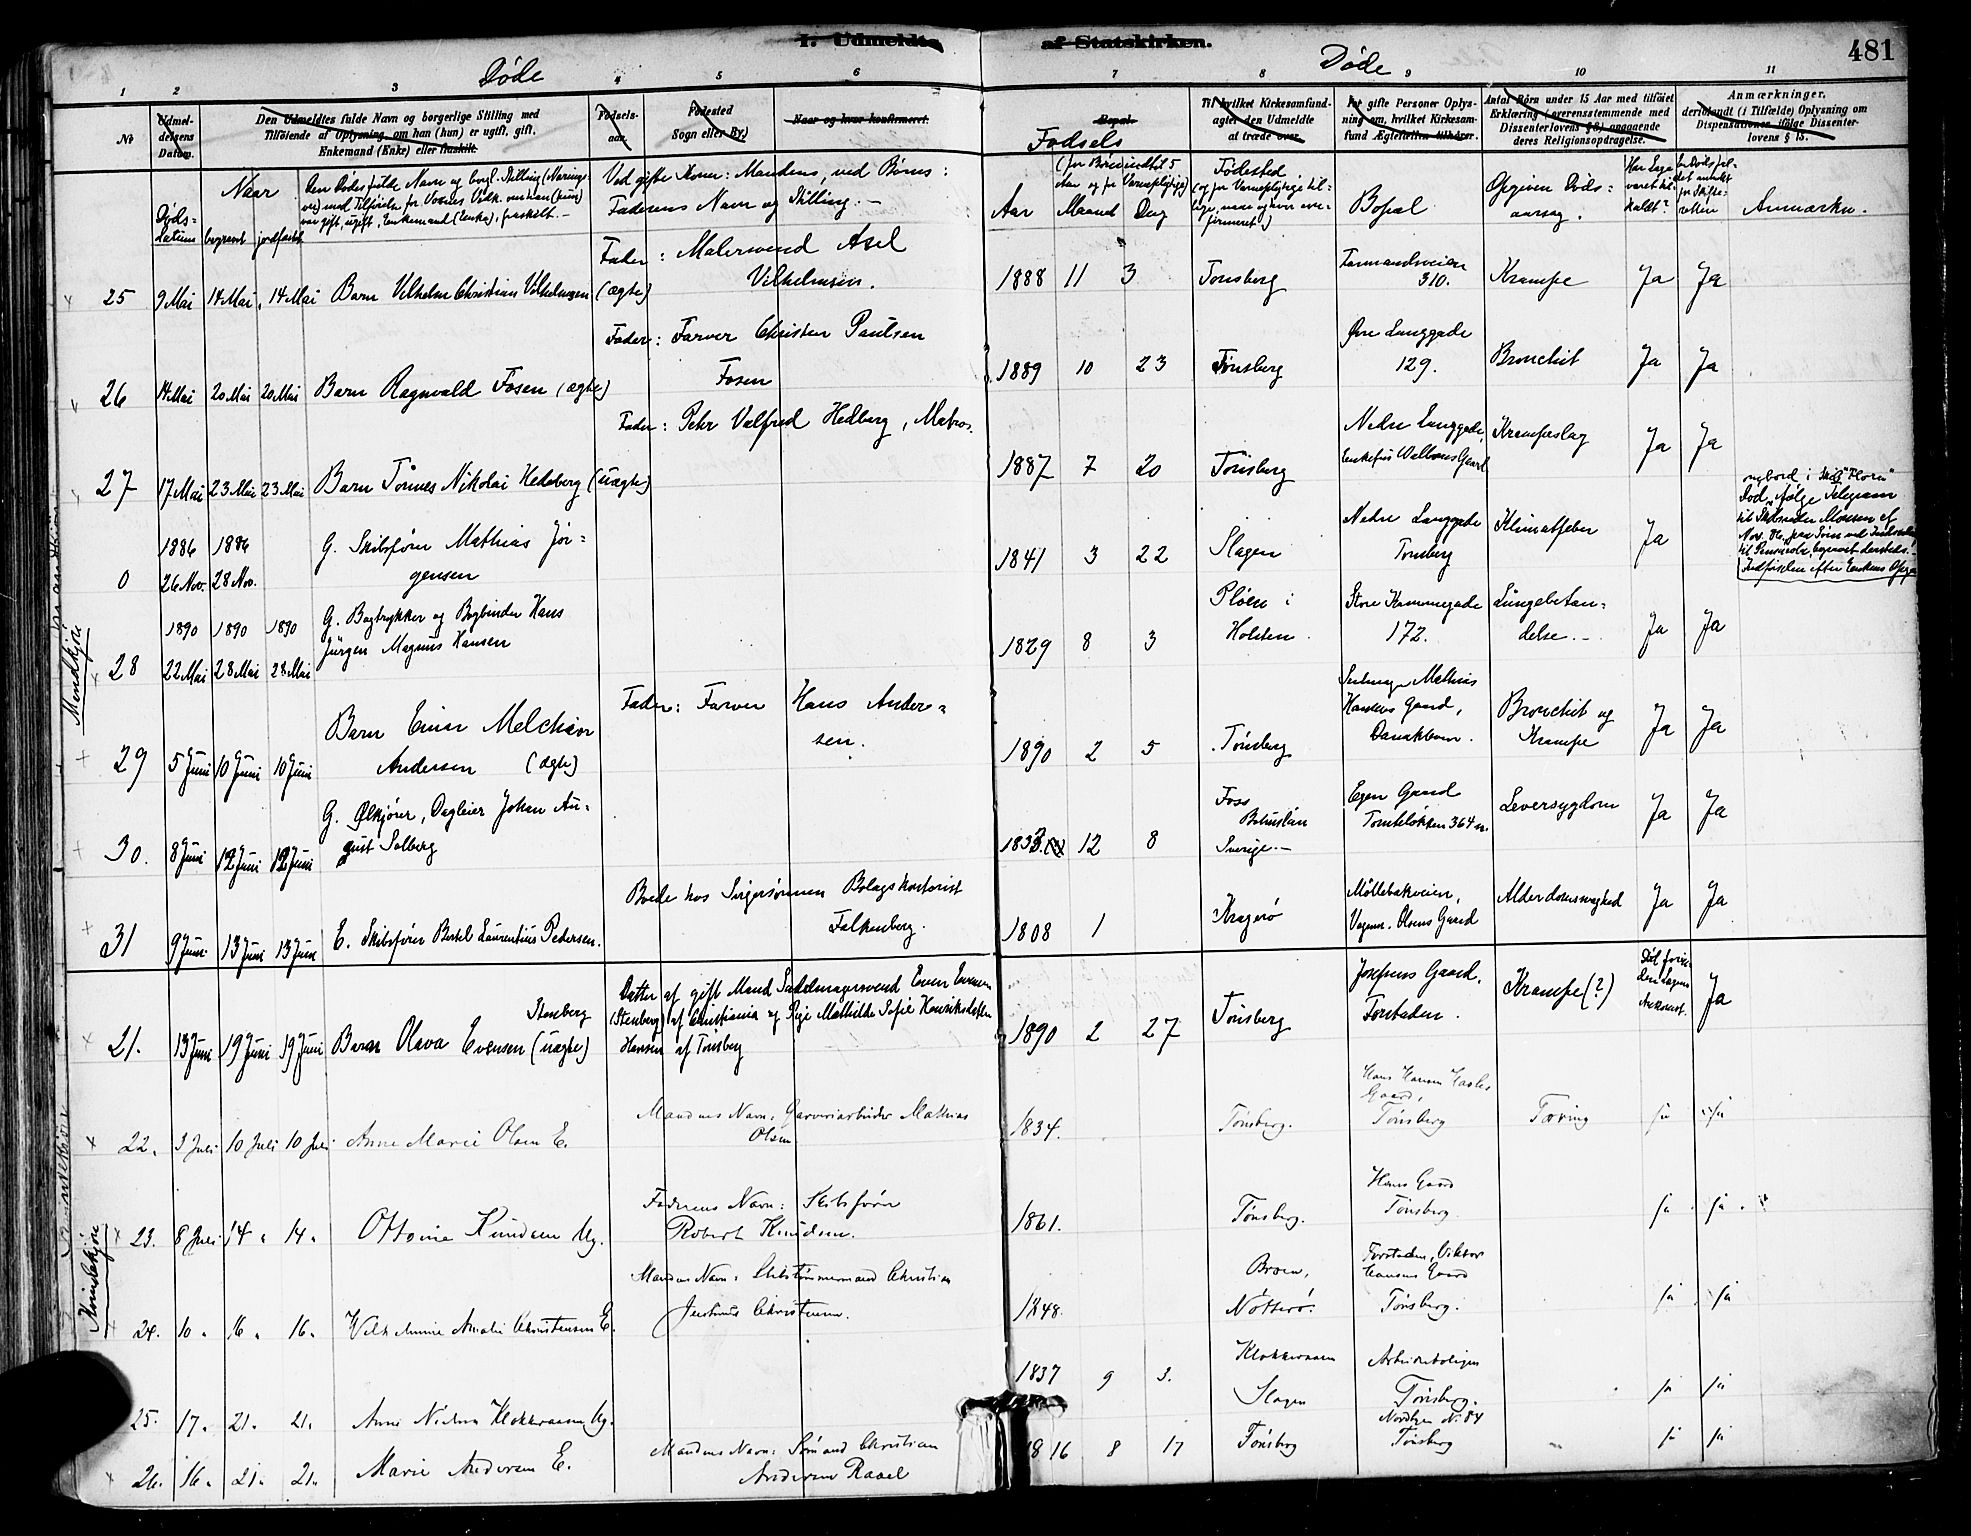 I. Udmeldte af Statskirken. 481
Døde Døde
1 2 3 4 5 6 7 8 9 10 11
No
Udmel-
delsens
Datum.
Den Udmeldtes fulde Navn og borgerlige Stilling med
Tilføiende af Oplysning om han (hun) er ugift, gift,
Enkemand (Enke) eller fraskilt.
Fødsels-
aar.
Fødested
Sogn eller By)
Naar og hvor konfirmeret.
Bopæl.
Fødsels
Til hvilket Kirkesamfund-
agter den Udmeldte
at træde over.
For gifte Personer Oplys-
ning om, hvilket Kirkesam-
fund Ægtefællen tilhører.
Antal Børn under 15 Aar med tilføiet
Erklæring (overensstemmende med
Dissenterlovens § 8) angaaende
deres Religionsopdragelse.
Anmærkninger,
deriblandt (i Tilfælde) Oplysning om
Dispensationen ifølge Dissenter-
lovens § 15.
Naar
Døds-
datum begravet jordfæstet
Den Dødes fulde Navn og borgl. Stilling (Nærings-
vei) med Tilføielse for Voxnes Vedk. om han (hun)
var gift, ugift, Enkemand (Enke), fraskilt. —
Ved gifte Koner: Mandens, ved Børns:
Faderens Navn og Stilling. —
(for Børn indtil 5
Aar og for Værnepligtige)
Aar Maaned Dag
Fødested
(og for Værnepligtige til-
lige, naar og hvor con-
firmeret)
Bopæl
Opgiven Døds-
aarsag.
Har Læge
været til-
kaldt?
Er Dødsfal-
det anmeldt
for Skifte-
retten
Anmærkn.
25 9 Mai 14 Mai 14 Mai Barn Vilhelm Christian Vilhelmsen (ægte) Fader: Malersvend Axel
Vilhelmsen. 1888 11 3 Tønsberg Farmandsveien
310. Krampe Ja Ja
26 14 Mai 20 Mai 20 Mai Barn Ragnvald Fosen (ægte) Fader: Farver Christen Paulsen
Fosen 1889 10 23 Tønsberg Øvre Langgade
129. Bronchit Ja Ja
27 17 Mai 23 Mai 23 Mai Barn Tønnes Nikolai Hedberg (uægte) Fader: Pehr Valfred Hedberg, Matros. 1887 7 20 Tønsberg Nedre Langgade,
Enkefru Gaard Krampeslag Ja Ja
0 1886 1886
26 Nov. 28 Nov. G. Skibsfører Mathias Jør-
gensen 1841 3 22 Slagen Nedre Langgade
Tønsberg Klimatfeber Ja
ombord i Skib "Flora"
Død ifølge Telegram
Nov. 86,
til Pensacola, begravet dersteds.
Indførselen efter Enkens Opgave
Mandkjøn
28 1890 1890 1890
22 Mai 28 Mai 28 Mai G. Bogtrykker og Bogbinder Hans
Jürgen Magnus Hansen 1829 8 3 Pløen i
Holsten. Store Kammegade
172. Lungebetæn-
delse. — Ja Ja
29 5 Juni 10 Juni 10 Juni Barn Einar Melchior
Andersen (ægte) Fader: Farver Hans Ander-
sen. 1890 2 5 Tønsberg Mathias
Hansens Gaard,
Bronchit og
Krampe Ja Ja
30. 8 Juni 12 Juni 12 Juni G. Ølkjører, Dagleier Johan Au-
gust Solberg 1833. 12 8 Foss
Bohuslän
Sverige. — Egen Gaard
364 Leversygdom Ja Ja
31 9 Juni 13 Juni 13 Juni E. Skibsfører Bertel Laurentius Pedersen. Boede hos Svigersønnen Bolagskontorist
Falkenberg. 1808 1 Kragerø Møllebakveien,
Vognm. Olsens Gaard Alderdomssvaghed Ja Ja
21. 13 Juni 19 Juni 19 Juni Barn Olava Evensen Stenberg (uægte) Datter af gift Mand Sadelmagersvend Even Evensen
(Stenberg) af Christiania og Pige Mathilde Sofie Henriksdatter
Hansen af Tønsberg 1890 2 27 Tønsberg Josefsens Gaard,
Forstaden. Krampe (?) Død forin-
den Lægens
Ankomst. Ja
Kvindekjøn
22. 3 Juli 10 Juli 10 Juli Anne Marie Olsen E. Mandens Navn: Garveriarbeider Mathias
Olsen 1834. Tønsberg. Hans Hansen
Gaard,
Tønsberg Tæring ja ja
23. 8 Juli 14 " 14 " Ottomine Knudsen Ug. Faderens Navn: Skibsfører
Robert Knudsen. 1861. Tønsberg. Gaard
Tønsberg. ja ja
24. 10 " 16 " 16 " Wilhelmine Amalie Christensen E. Mandens Navn: Skibstømmermand Christian
Christensen. 1848. Broen,
Nøtterø. Forstaden, Viktor
Hansens Gaard
Tønsberg. ja ja
25. 17 " 21 " 21 " Anne Nielsen Klokkeraasen Ug. 1837 9 3. Klokkeraasen
Slagen Arbeiderboligen
Tønsberg. ja ja
26. 16 " 21 " 21 " Marie Andersen E. Mandens Navn: Sømand Christian
Andersen Ravel 1816 8 17 Tønsberg Nordbyen No. 84
Tønsberg ja ja